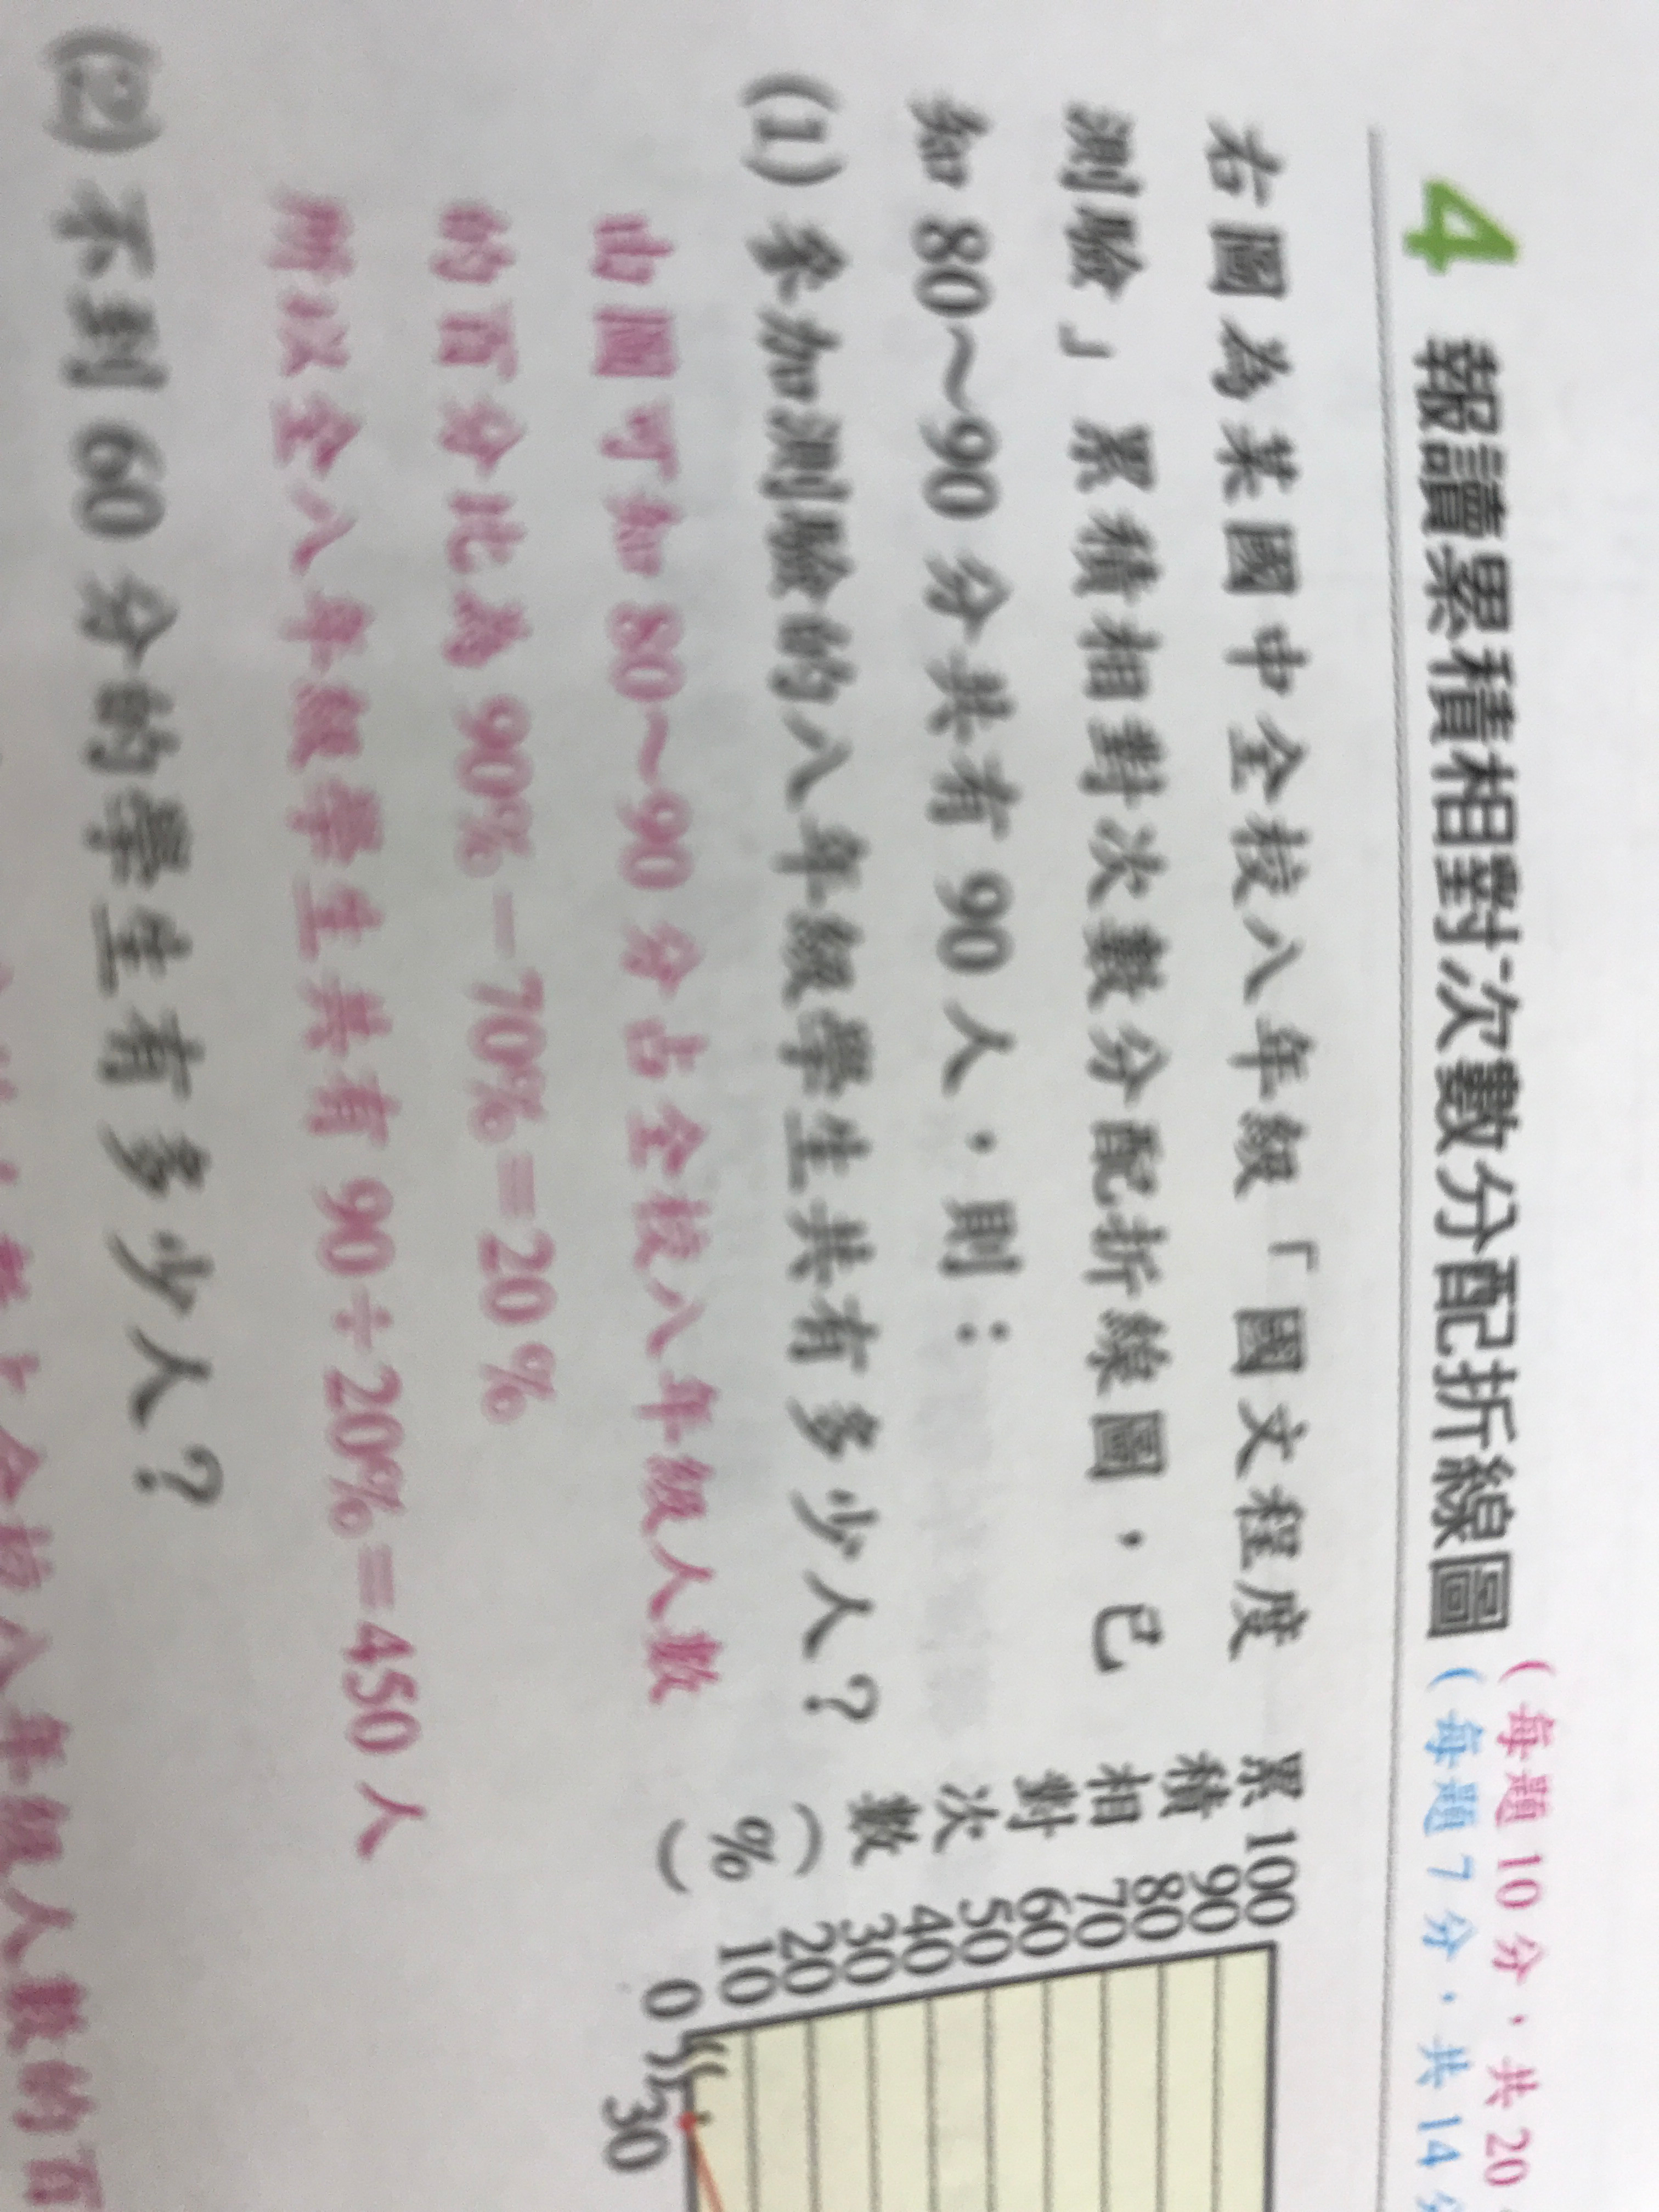 4 報讀累積相對次數分配折線圖
(每題 10 分，共 20
(每題 7 分，共 14 分
右圖為某國中全校八年級「國文程度
測驗」累積相對次數分配折線圖，已
知 80～90 分共有 90 人，則：
(1) 參加測驗的八年級學生共有多少人？
由圖可知 80～90 分占全校八年級人數
的百分比為 90%－70%＝20 %
所以全八年級學生共有 90÷20%＝450 人
(2) 不到 60 分的學生有多少人？
全校八年級人數的百
累積相對次數(%)
100
90
80
70
60
50
40
30
20
10
0
30